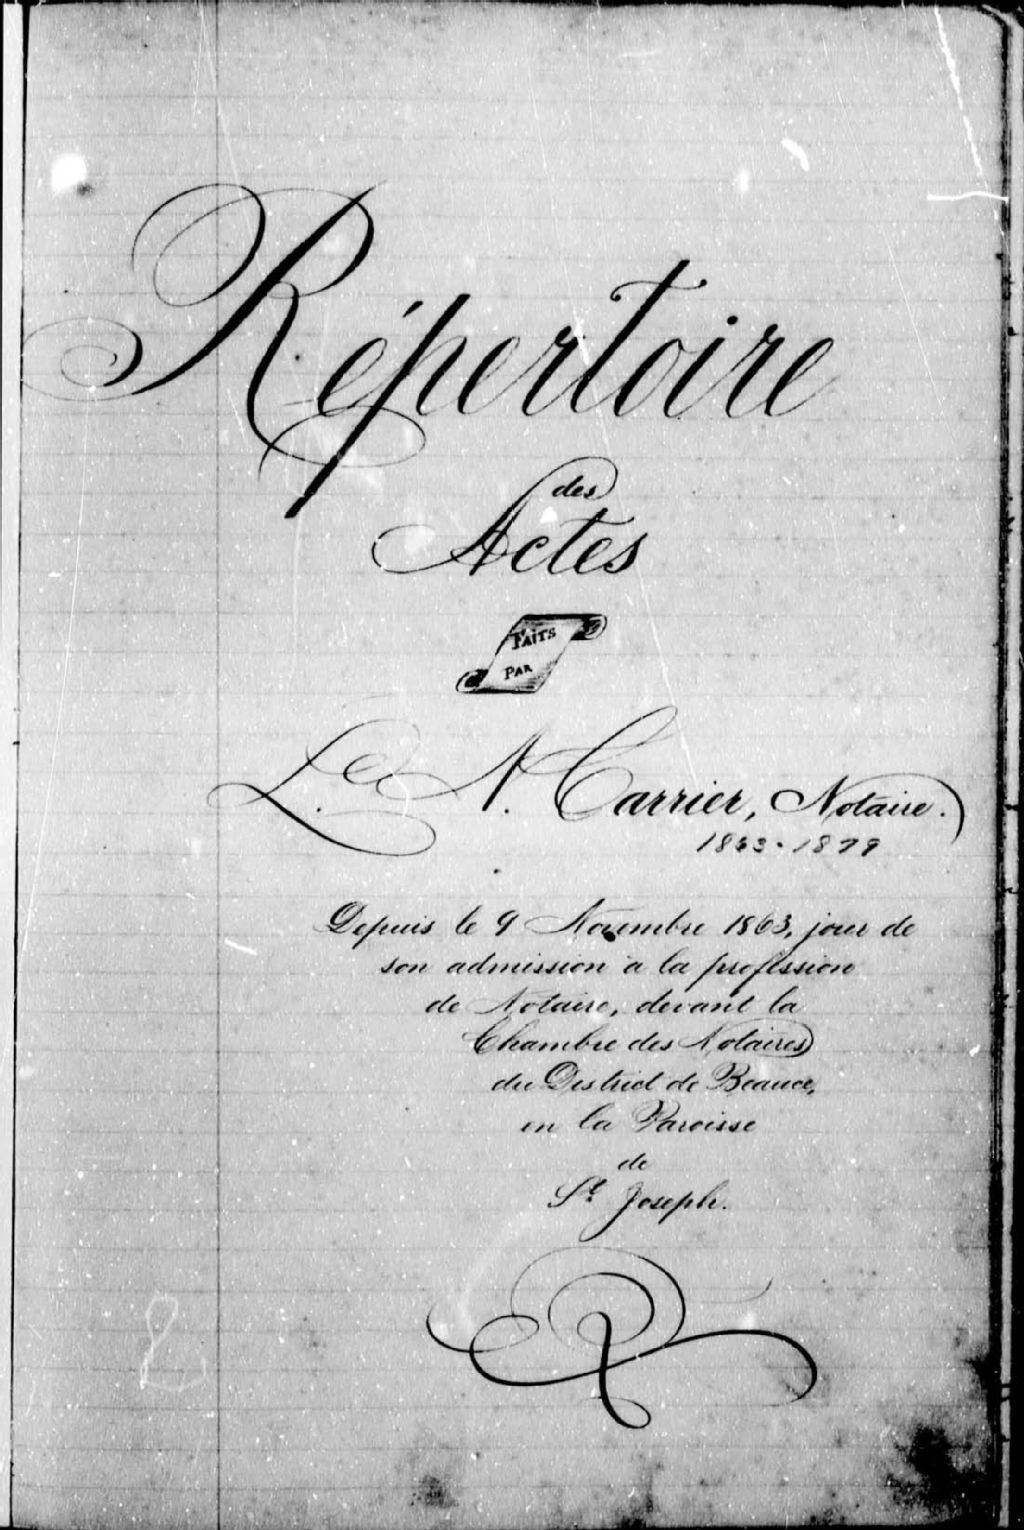 Répertoire
des
Actes
FAITS
PAR
L. N. Carrier, Notaire.
1863-1879
Depuis le 9 Novembre 1863, jour de
son admission à la profession
de Notaire, devant la
Chambre des Notaires
du District de Beauce,
en la Paroisse
de
St. Joseph.
2